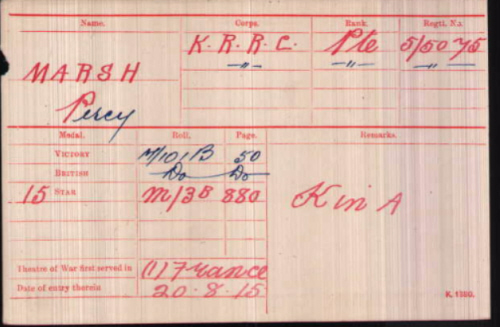 Name. Corps. Rank. Regtl. No.
K. R. R. C. Pte 5/5075
MARSH —"— —"— —"— —"—
Percy
Medal. Roll. Page. Remarks.
VICTORY M/101B 50
BRITISH Do Do
15 STAR M/3B 880 K in A
Theatre of War first served in (1) France
Date of entry therein 20-8-15
K. 1380.